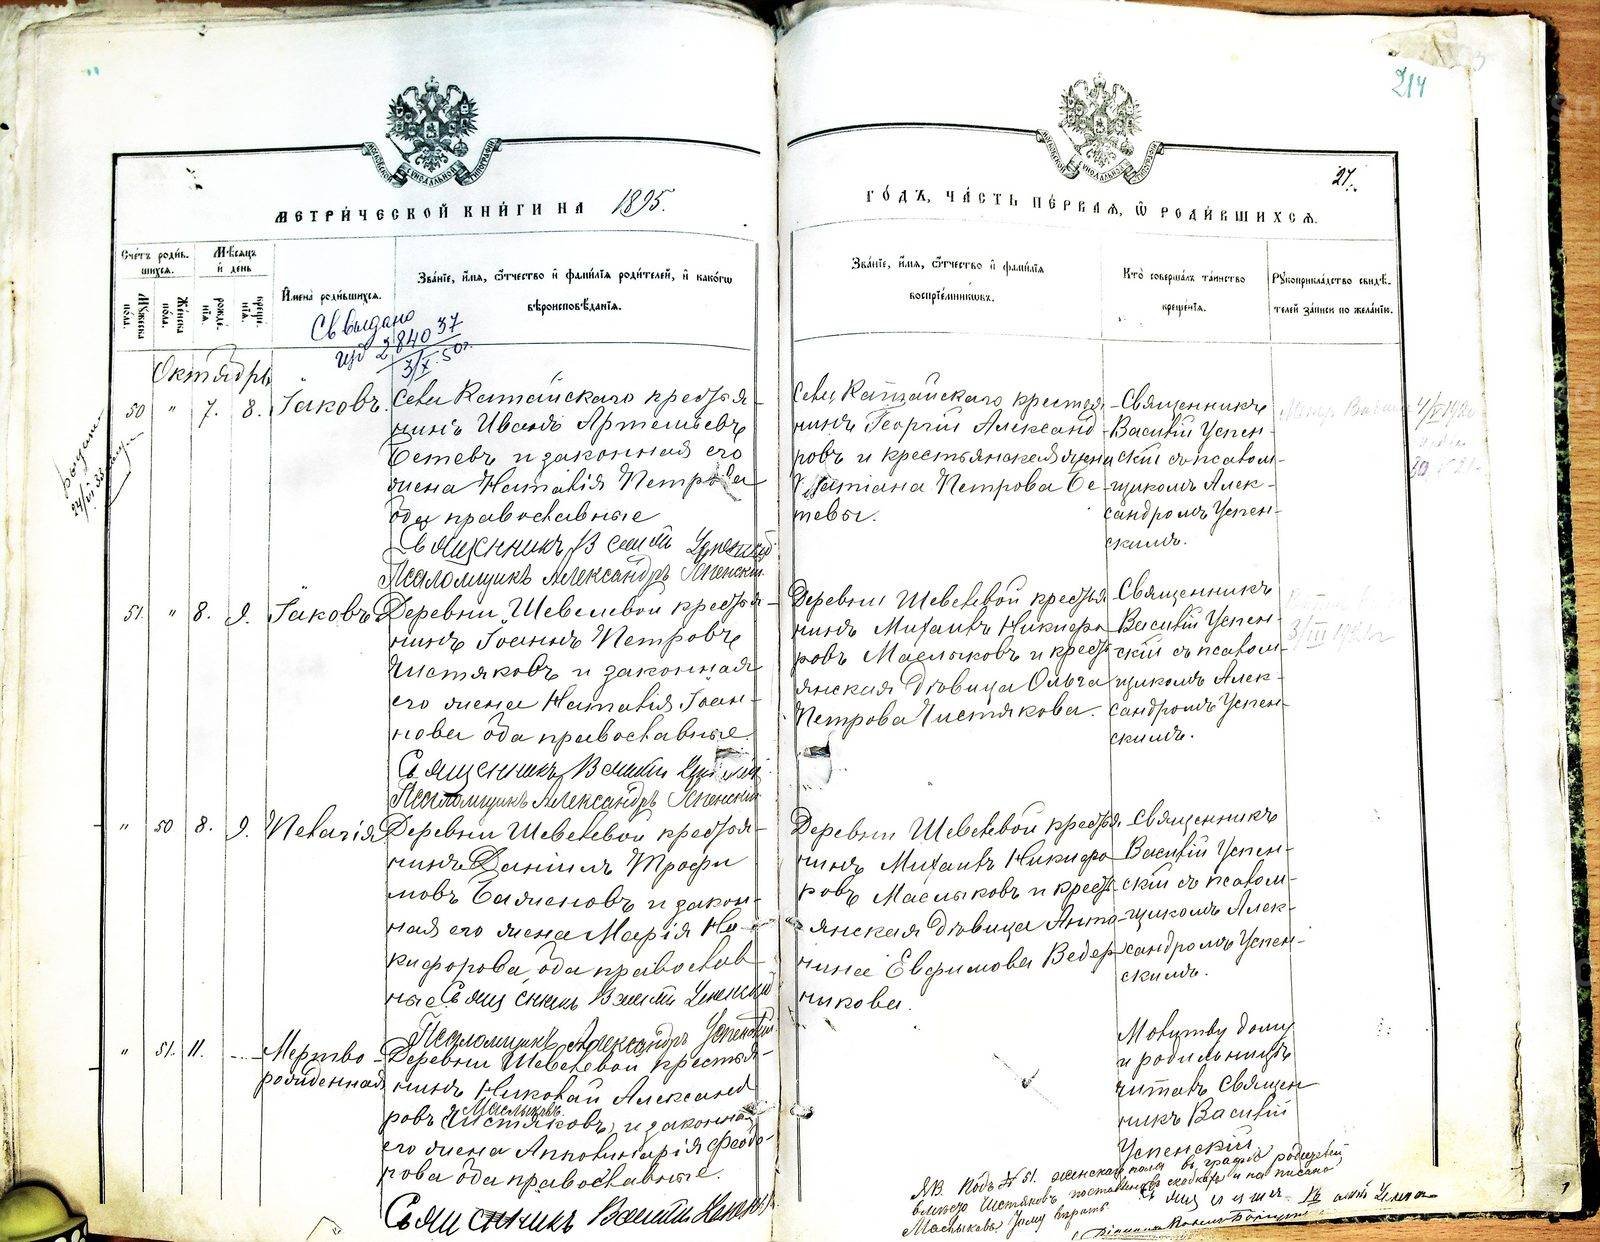 214
27.
МОСКОВСКОЙ СѴНОДАЛЬНОЙ ТИПОГРАФІИ
МОСКОВСКОЙ СѴНОДАЛЬНОЙ ТИПОГРАФІИ
МЕТРИ́ЧЕСКОЙ КНИ́ГИ НА 1895.
ГО́ДЪ, ЧА́СТЬ ПЕ́РВАЯ, Ѡ РОДИ́ВШИХСЯ.
Сче́тъ роди́в-
шихся.
Мѣ́сяцъ
и҆ день
Мꙋ́жеска
по́ла.
Же́нска
по́ла.
рожде́-
нія.
креще́-
нія.
И҆мена̀ роди́вшихся.
Зва́ніе, и҆́мя, ѻ҆́тчество и҆ фами́лія роди́телей, и҆ како́гѡ
вѣроисповѣ́данія.
Зва́ніе, и҆́мя, ѻ҆́тчество и҆ фами́лія
воспріе́мникѡвъ.
Кто̀ соверша́лъ та́инство
креще́нія.
Рꙋкоприкла́дство свидѣ́-
телей за́писи по жела́нію.
Св выдано
284037
3/X.50г.
Октябрь
50 " 7. 8. Іаковъ.
Села Катайскаго крестья-
нинъ Иванъ Артемьевъ
Бетевъ и законная его
жена Наталія Петрова
оба православные
Священникъ Василій Успенскій
Псаломщикъ Александръ Успенскій.
Села Катайскаго крестья-
нинъ Георгій Александ-
ровъ и крестьянская жена
Татіана Петрова Бе-
тевы.
Священникъ
Василій Успен-
скій съ псалом-
щикомъ Алек-
сандромъ Успен-
скимъ.
51. " 8. 9. Іаковъ
Деревни Шевелевой крестья-
нинъ Іоаннъ Петровъ
Чистяковъ и законная
его жена Наталія Іоан-
нова оба православные.
Священникъ Василій
Псаломщикъ Александръ Успенскій
Деревни Шевелевой крестья-
нинъ Михаилъ Никифо-
ровъ Маслыковъ и кресть-
янская дѣвица Ольга
Петрова Чистякова.
Священникъ
Василій Успен-
скій съ псалом-
щикомъ Алек-
сандромъ Успен-
скимъ.
3/III 1921г
" 50 8. 9. Пелагія
Деревни Шевелевой крестья-
нинъ Даніилъ Трофи
мовъ Баженовъ и закон-
ная его жена Марія Ни-
кифорова, оба православ
ные Священникъ Василій Успенскій
Псаломщикъ Александръ Успенскій
Деревни Шевелевой крестья
нинъ Михаилъ Никифо-
ровъ Маслыковъ и кресть-
янская дѣвица Анто-
нина Евфимова Ведер-
никова.
Священникъ
Василій Успен-
скій съ псалом-
щикомъ Алек-
сандромъ Успен-
скимъ.
" 51. 11. Мертво-
рожденная
Деревни Шевелевой крестья-
нинъ Николай Александ
Маслыковъ
ровъ (Чистяковъ) и законная
его жена Апполинарія Феодо-
рова оба православные.
Священникъ Василій
Молитву дому
и родильницѣ
читалъ Священ
никъ Василій
Успенскій.
Подъ № 51. женскаго пола въ графѣ родителей
Чистяковъ поставлено въ скобкахъ и написано
Маслыковъ